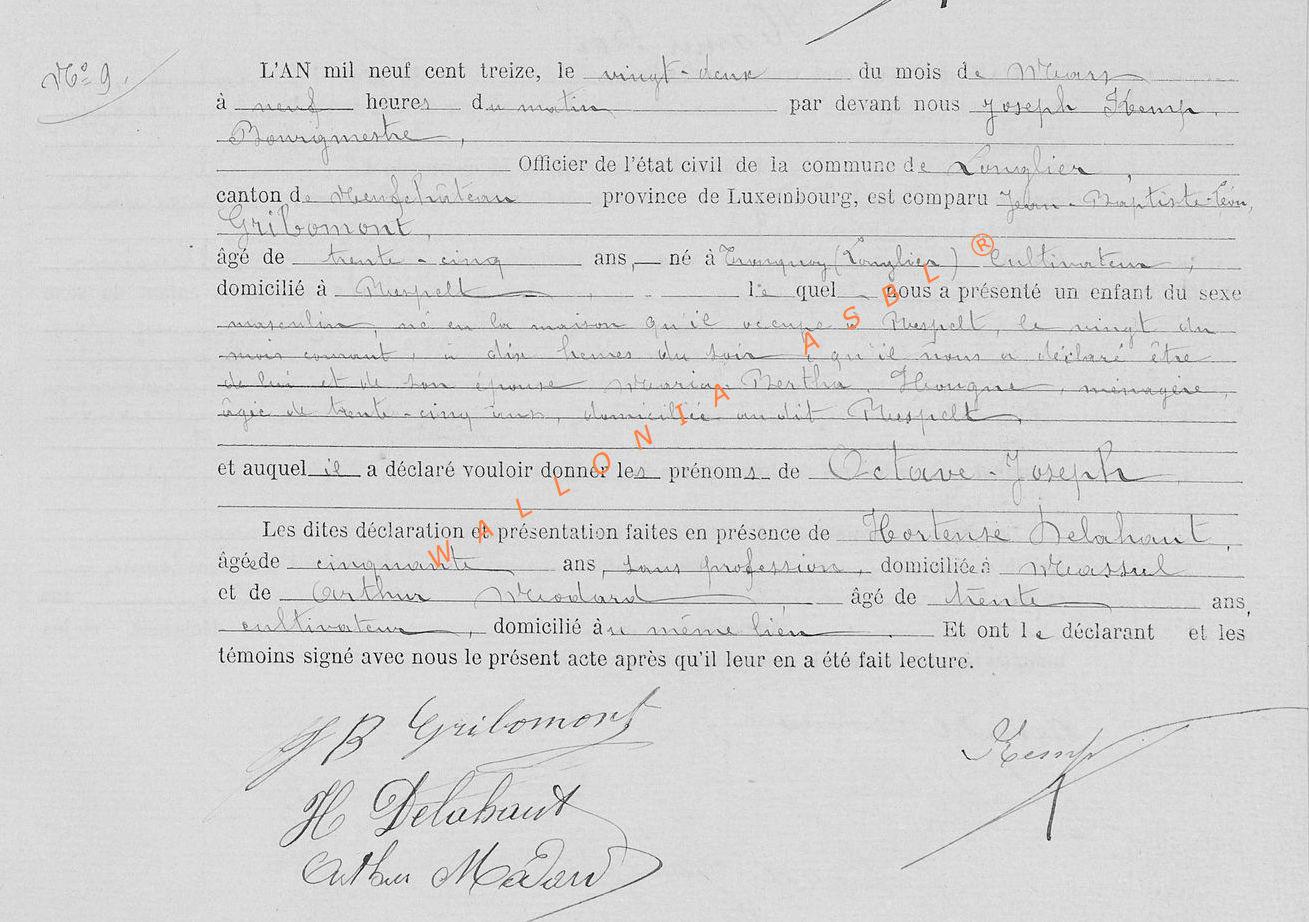 N° 9.
L'AN mil neuf cent treize, le vingt-deux du mois de Mars
à neuf heures du matin par devant nous Joseph Kemp,
Bourgmestre,
Officier de l'état civil de la commune de Longlier,
canton de Neufchâteau province de Luxembourg, est comparu Jean-Baptiste-Léon,
Gribomont,
âgé de trente-cinq ans, né à Tronquoy (Longlier) Cultivateur,
domicilié à Respelt, le quel nous a présenté un enfant du sexe
masculin, né en la maison qu'il occupe à Respelt, le vingt du
mois courant, à dix heures du soir, qu'il nous a déclaré être
de lui et de son épouse Maria-Bertha, Hougne, ménagère,
âgée de trente-cinq ans, domiciliée au dit Respelt
et auquel il a déclaré vouloir donner les prénoms de Octave-Joseph
Les dites déclaration et présentation faites en présence de Hortense Delahaut,
âgée de cinquante ans, sans profession, domiciliée à Massul
et de Arthur Modard, âgé de trente ans,
cultivateur, domicilié au même lieu. Et ont le déclarant et les
témoins signé avec nous le présent acte après qu'il leur en a été fait lecture.
J B Gribomont
Kemp
H Delahaut
Arthur Modard
WALLONIA ASBL ®